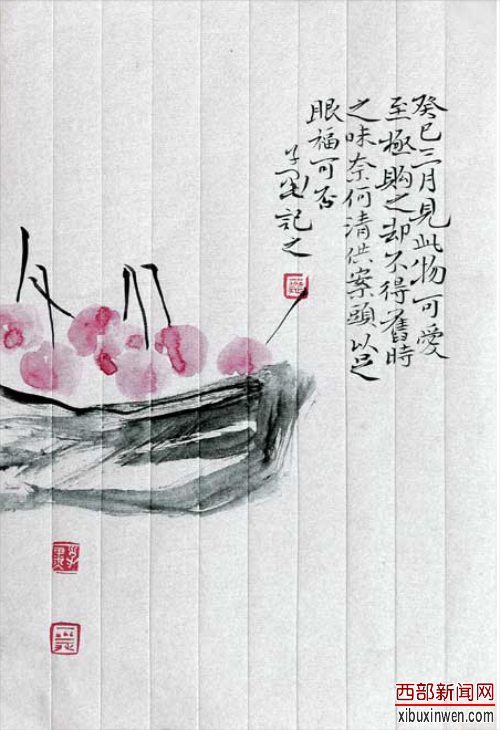 癸巳三月見此物可愛
至極購之却不得舊時
之味奈何清供案頭以足
眼福可否
記之
西部新闻网
xibuxinwen.com